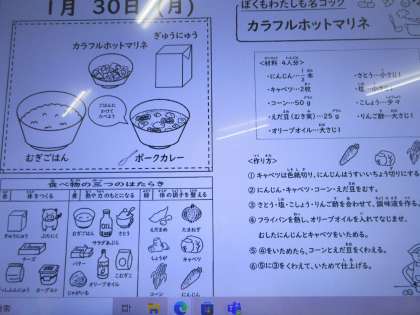 1月 30日 (月)
カラフルホットマリネ
ぎゅうにゅう
ごはんに
かけて
たべよう
むぎごはん
ポークカレー
食べ物の三つのはたらき
体をつくる
熱や力のもとになる
体の調子を整える
ぎゅうにゅう
ぶたにく
チーズ
ヨーグルト
むぎごはん
サラダあぶら
さとう
バター
オリーブオイル
こむぎこ
じゃがいも
えだまめ
たまねぎ
しょうが
キャベツ
コーン
にんじん
ぼくもわたしも名コック
カラフルホットマリネ
<材料 4人分>
・にんじん…1/2本
・キャベツ…2枚
・コーン…50g
・えだ豆(むき実)…25g
・オリーブオイル…大さじ1
・さとう…小さじ1
・塩…小さじ
・こしょう…少々
・りんご酢…大さじ1
<作り方>
①キャベツは色紙切り、にんじんはうすいちょう切りにする。
②にんじん・キャベツ・コーン・えだ豆をむす。
③さとう・塩・こしょう・りんご酢を合わせて、調味液を作る。
④フライパンを熱し、オリーブオイルを入れてなじませ、
むしたにんじんとキャベツをいためる。
⑤④をいためたら、コーンとえだ豆をくわえる。
⑥⑤に③をくわえて、いためて仕上げる。
検索